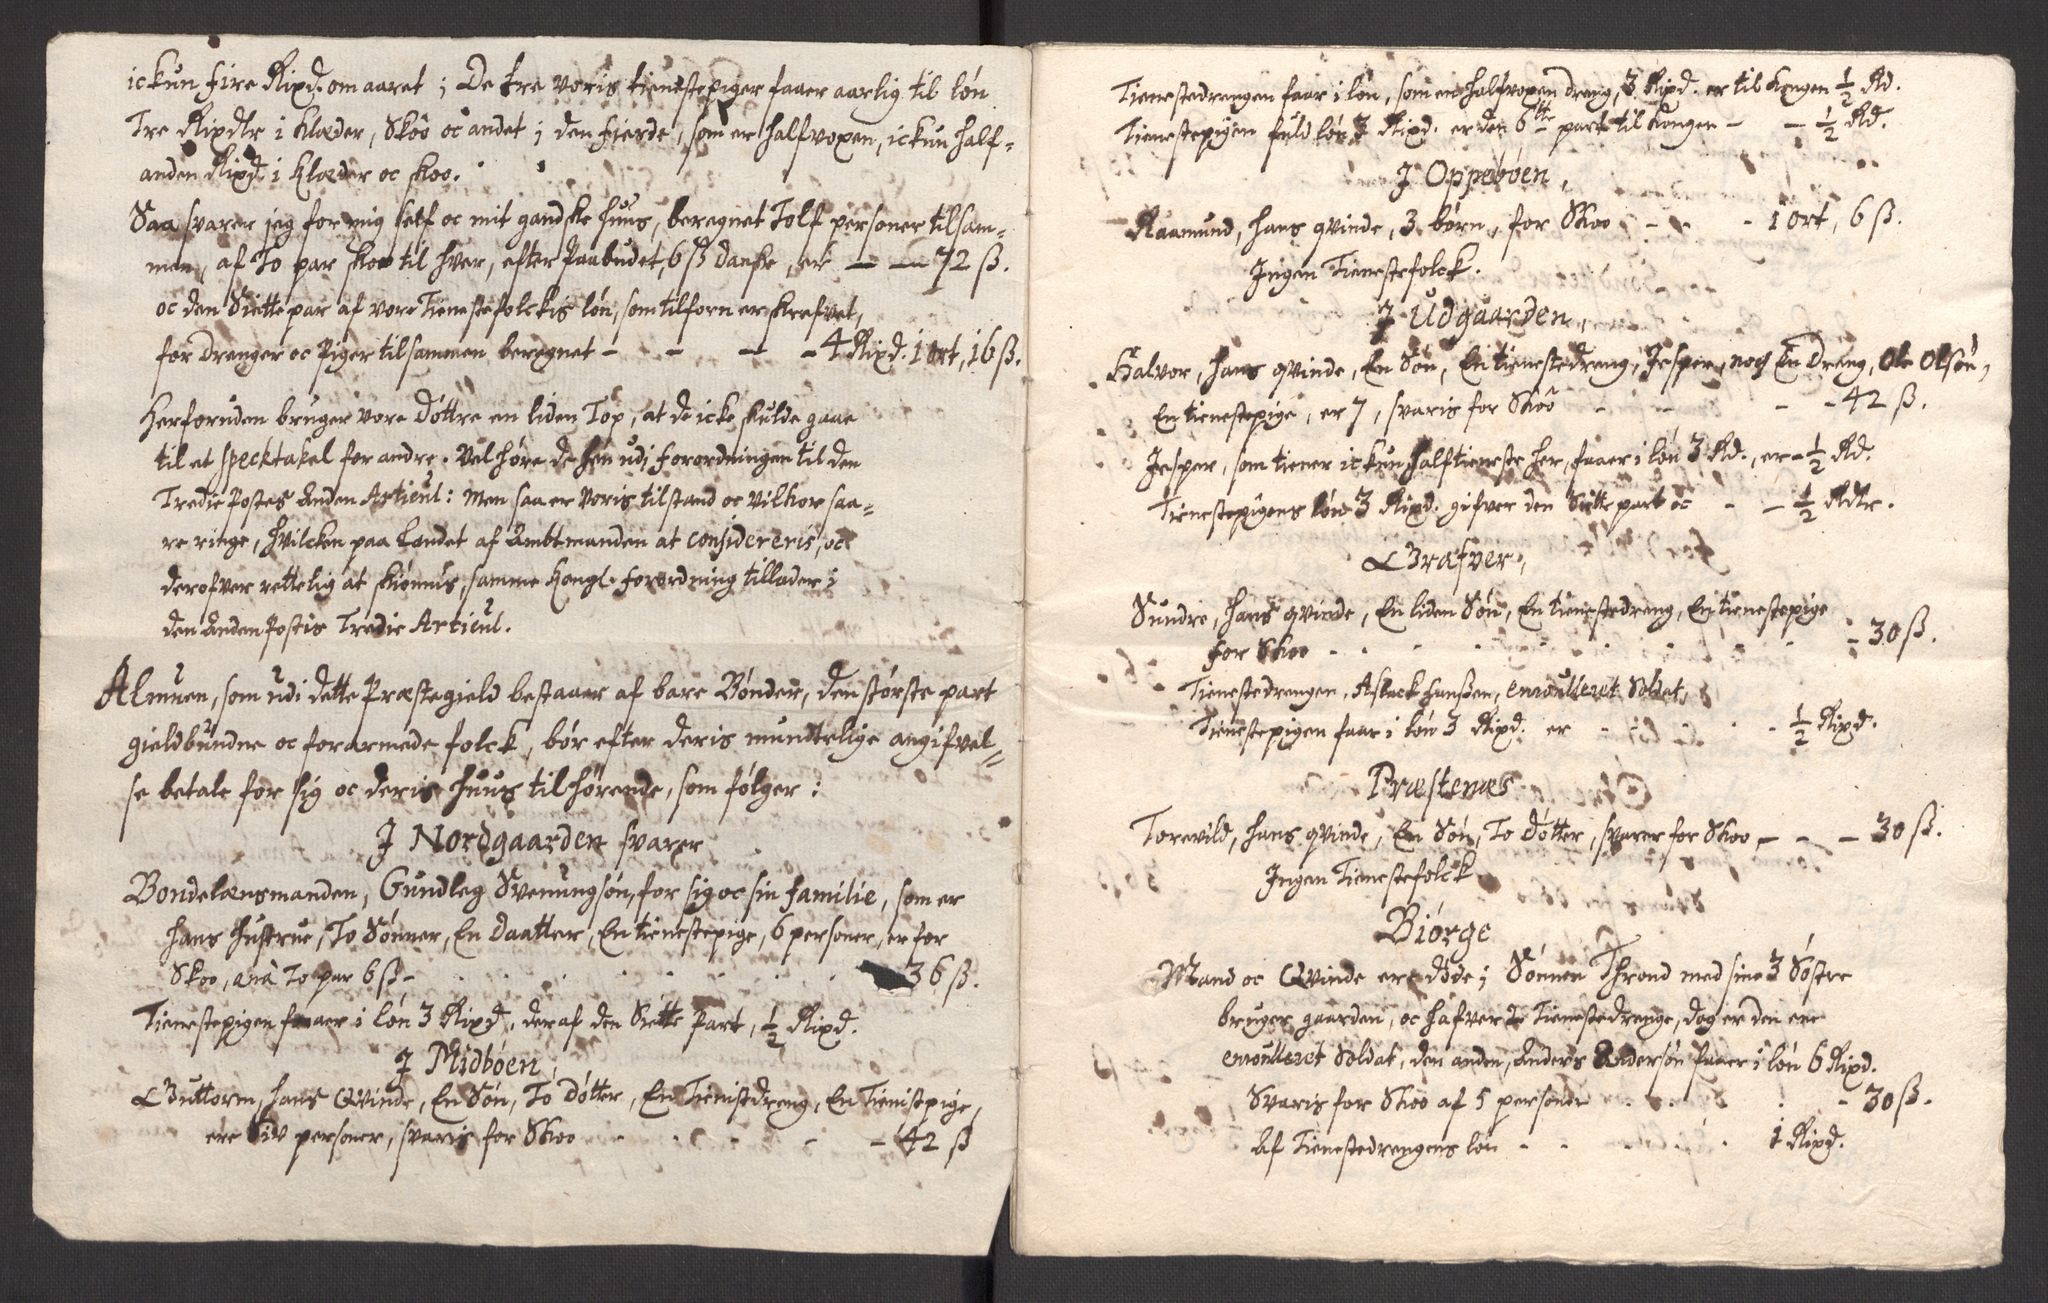 ickun fire Rixd. om aaret; De tre voris tienestepiger faaer aarlig til løn
Tre Rixdlr i Klæder, Skoo oc andet; den fierde, som er halfvoxen, ickun half-
anden Rixd. i Klæder oc skoo.
Saa svarer jeg for mig self oc mit gandske huus, beregnet Tolf personer tilsam-
men, af To par skoo til hver, efter Paabudet, 6 ß danske, er — — 72 ß.
oc den Siette par af vore Tienestefolckis løn, som tilforn er skrefvet,
for drenger oc Piger tilsammen beregnet - - - - 4 Rixd. 1 ort, 16 ß.
Herforuden bruger vore døttre en liden Top, at de icke skulde gaae
til et specktakel for andre. Vel høre de hen udj forordningen til den
Tredie Postes Anden Articul: Men saa er voris tilstand oc vilkor saa-
re ringe, hvilcken paa Landet af Ambtmanden at considereris, oc
derofver rettelig at skiønnis, samme Kongl. forordning tillader i
den Anden Postis Tredie Articul.
Almuen, som udi dette Præstegield bestaaer af bare Bønder, den største part
gieldbundne oc forarmede folck, bør efter deris mundtelige angifvel-
se betale for sig oc deris huus tilhørende, som følger:
J Nordgaarden svarer
Bondelænsmanden, Gundleg Svenungsøn, for sig oc sin familie, som er
hans hustrue, To Sønner, En daatter, En tienestepige, 6 personer, er for
Skoo, aviâ To par 6 ß - . . . . . . 36 ß.
Tienestepigen faaer i løn 3 Rixd., deraf den Siette Part, ½ Rixd.
J Midbøen,
Guttorm, hans Qvinde, En Søn, To døtter, En Tienistdreng, En Tienistepige,
ere Siv personer, svaris for Skoo - - - - - 42 ß
Tienestedrengen faar i løn, som en halfvoxen dreng, 3 Rixd. er til Kongen ½ Rd.
Tienestepigen fuld løn 3 Rixd. er den 6tte part til Kongen - - ½ Rd.
J Oppebøen,
Raamund, hans qvinde, 3 børn, for Skoo - - - 1 ort, 6 ß.
Jngen Tienestefolck.
J Udgaarden,
Halvor, hans qvinde, En Søn, En tienestedreng, Jesper, noch En dreng, Ole Olsøn,
En tienestepige, er 7, svaris for Skoo - - - - 42 ß.
Jesper, som tiener ickun halftieneste her, faaer i løn 3 Rd., er - ½ Rd.
Tienestepigens løn 3 Rixd. gifver den Siette part oc - - ½ Rdlr.
Græfver,
Sundre, hans qvinde, En liden Søn, En tienestedreng, En tienestepige
for Skoo - - - - - - - 30 ß.
Tienestedrengen, Aslack hanssen, enroulleret Soldat,
Tienestepigen faar i løn 3 Rixd. er - - - ½ Rixd.
Præstenæs
Torevild, hans qvinde, En Søn, To døtter, svarer for Skoo - - - 30 ß.
Jngen Tienestefolck
Biørge
Mand oc Qvinde ere døde; Sønnen Thrond med sine 3 Søstre
bruger gaarden, oc hafver 2 Tienestedrenge, dog er den ene
enroulleret Soldat, den anden, Anders Andersøn faaer i løn 6 Rixd.
Svaris for Skoo af 5 personer - - - - 30 ß.
Af Tienestedrengens løn - - - - 1 Rixd.